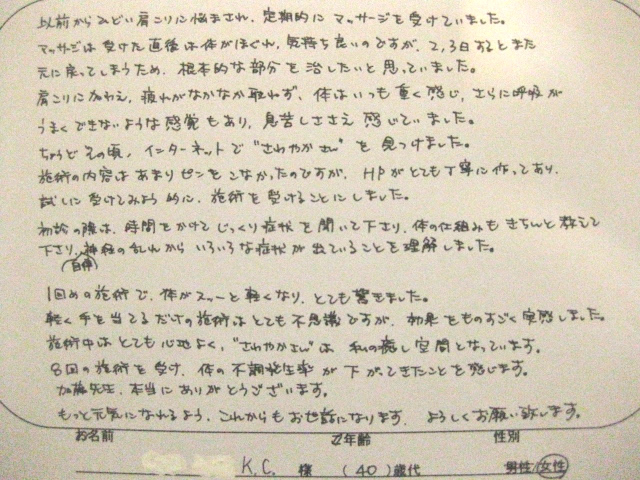 以前からひどい肩こりに悩まされ、定期的にマッサージを受けていました。
マッサージは受けた直後は体がほぐれ、気持ち良いのですが、2,3日するとまた
元に戻ってしまうため、根本的な部分を治したいと思っていました。
肩こりに加わえ、疲れがなかなか取れず、体はいつも重く感じ、さらに呼吸が
うまくできないような感覚もあり、息苦しささえ感じていました。
ちょうどその頃、インターネットで"さわやかさん"を見つけました。
施術の内容はあまりピンとこなかったのですが、HPがとても丁寧に作ってあり、
試しに受けてみよう的に、施術を受けることにしました。
初診の際は、時間をかけてじっくり症状を聞いて下さり、体の仕組みもきちんと教えて
下さり、神経の乱れからいろいろな症状が出ていることを理解しました。
自律
1回めの施術で、体がスッーと軽くなり、とても驚きました。
軽く手を当てるだけの施術はとても不思議ですが、効果をものすごく実感しました。
施術中はとても心地よく、"さわやかさん"は私の癒し空間となっています。
8回の施術を受け、体の不調発生率が下がってきたことを感じます。
加藤先生、本当にありがとうございます。
もっと元気になれるよう、これからもお世話になります。よろしくお願い致します。
お名前 ご年齢 性別
K.C. 様 (40)歳代 男性/女性